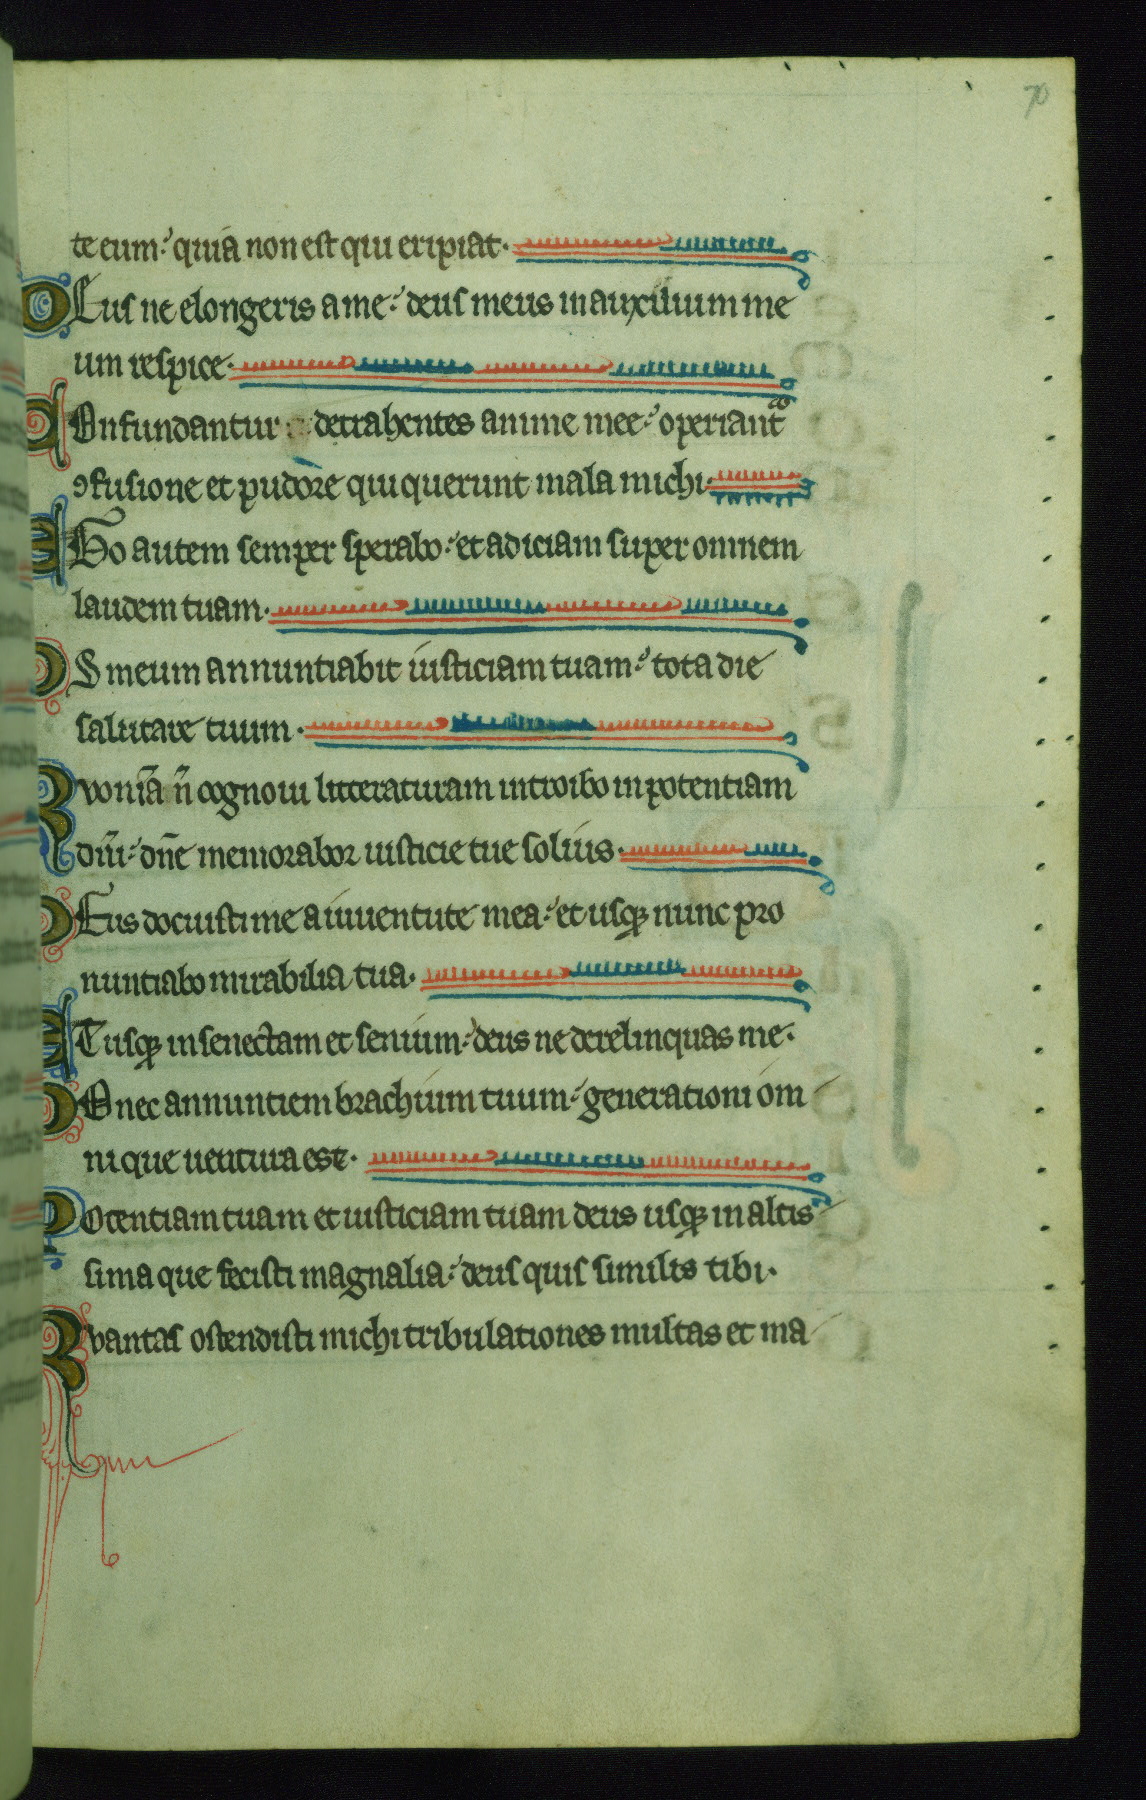 70
te eum: quia non est qui eripiat.
Deus ne elongeris a me: deus meus in auxilium me
um respice.
Confundantur detrahentes anime mee: operiant᷑
ꝯfusione et pudore qui querunt mala michi.
Ego autem semper sperabo: et adiciam super omnem
laudem tuam.
Os meum annuntiabit iusticiam tuam: tota die
salutare tuum.
Quoniā n̄ cognoui litteraturam introibo in potentiam
dn̄i: dn̄e memorabor iusticie tue solius.
Deus docuisti me a iuuentute mea: et usqꝫ nunc pro
nuntiabo mirabilia tua.
Et usqꝫ in senectam et senium: deus ne derelinquas me.
Donec annuntiem brachium tuum: generationi om
ni que uentura est.
Potentiam tuam et iusticiam tuam deus usqꝫ in altis
sima que fecisti magnalia: deus quis similis tibi.
Quantas ostendisti michi tribulationes multas et ma